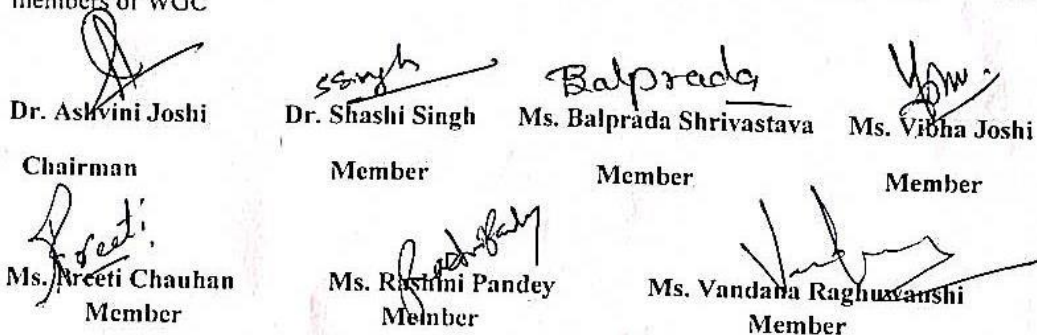 members of WGC
ssingh Balprada
Dr. Ashvini Joshi Dr. Shashi Singh Ms. Balprada Shrivastava Ms. Vibha Joshi
Chairman Member Member Member
Preeti
Ms. Preeti Chauhan Ms. Rashmi Pandey Ms. Vandana Raghuwanshi
Member Member Member